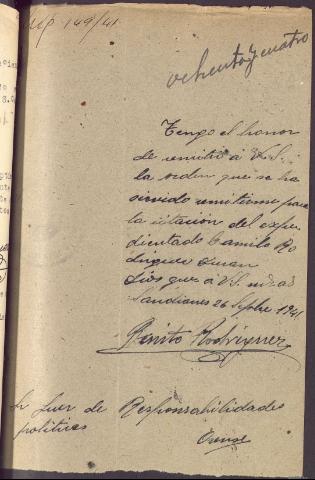 149/41
ochenta y cuatro
Tengo el honor
de remitir á V.S.
la orden que se ha
servido remitirme para
la citacion del expe
dientado Camilo Ro
driguez
Dios gue á V.S. m. as
Sandianes 26 Sepbre 1941
Benito Rodriguez
Sr Juez de Responsabilidades
politicas
Orense